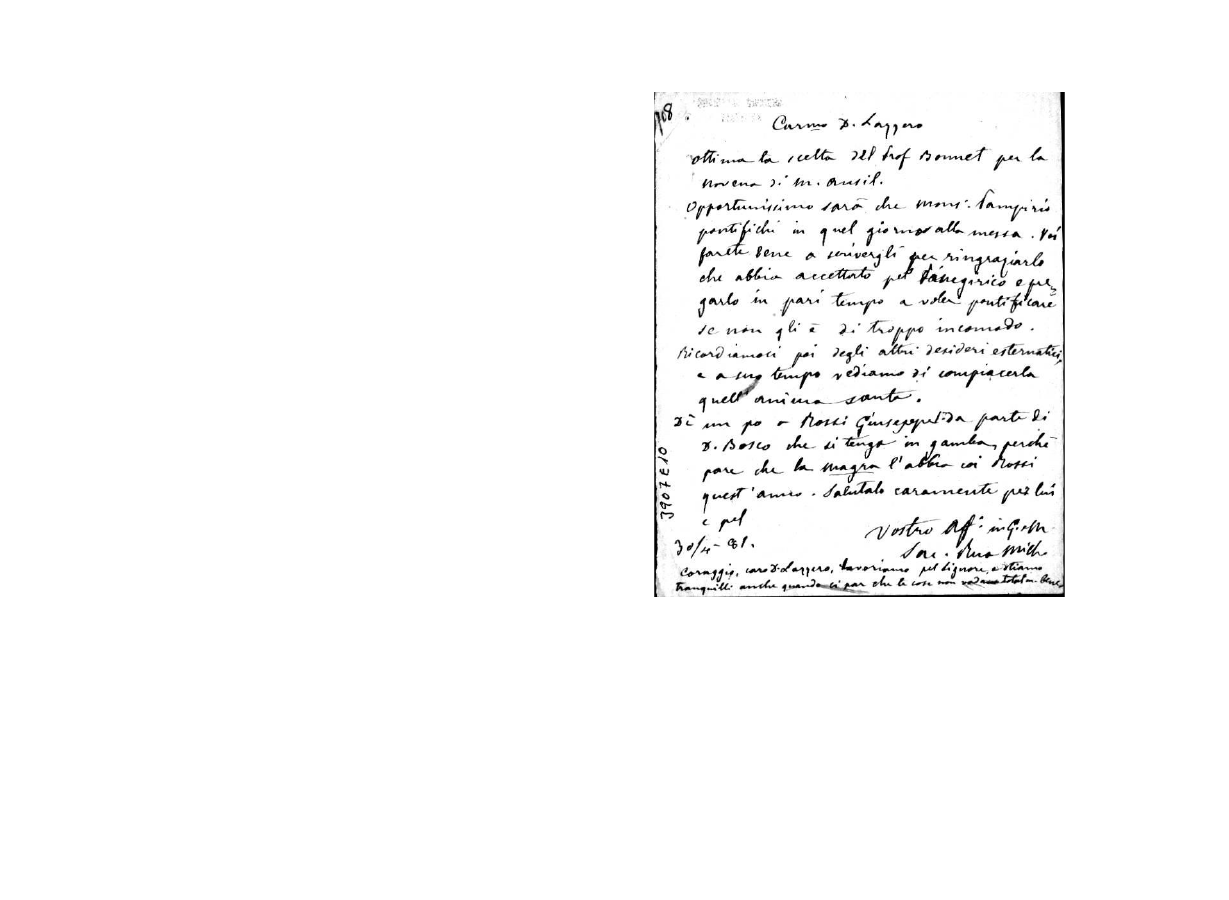 708
Carmo D. Lazzero
Ottima la scelta del Prof Bonnet per la
novena di M. Ausil.
Opportunissimo sarà che Mons.r Tampirio
pontifichi in quel giorno alla messa. Voi
farete bene a scrivergli per ringraziarlo
che abbia accettato pel Panegirico e pre-
garlo in pari tempo a voler pontificare
se non gli è di troppo incomodo.
Ricordiamoci poi degli altri desideri esternatici,
e a suo tempo vediamo di compiacerla
quell'anima santa.
Di' un po a Rossi Giuseppe da parte di
D. Bosco che si tenga in gamba, perchè
pare che la magra l'abbia coi Rossi
quest'anno. Salutalo caramente per lui
e pel
Vostro Aff.o in G. e M.
30/4 - 81.
Sac. Rua Mich.
Coraggio, caro D. Lazzero, lavoriamo pel Signore, e stiamo
tranquilli anche quando ci par che le cose non vadano total. bene
3907E10